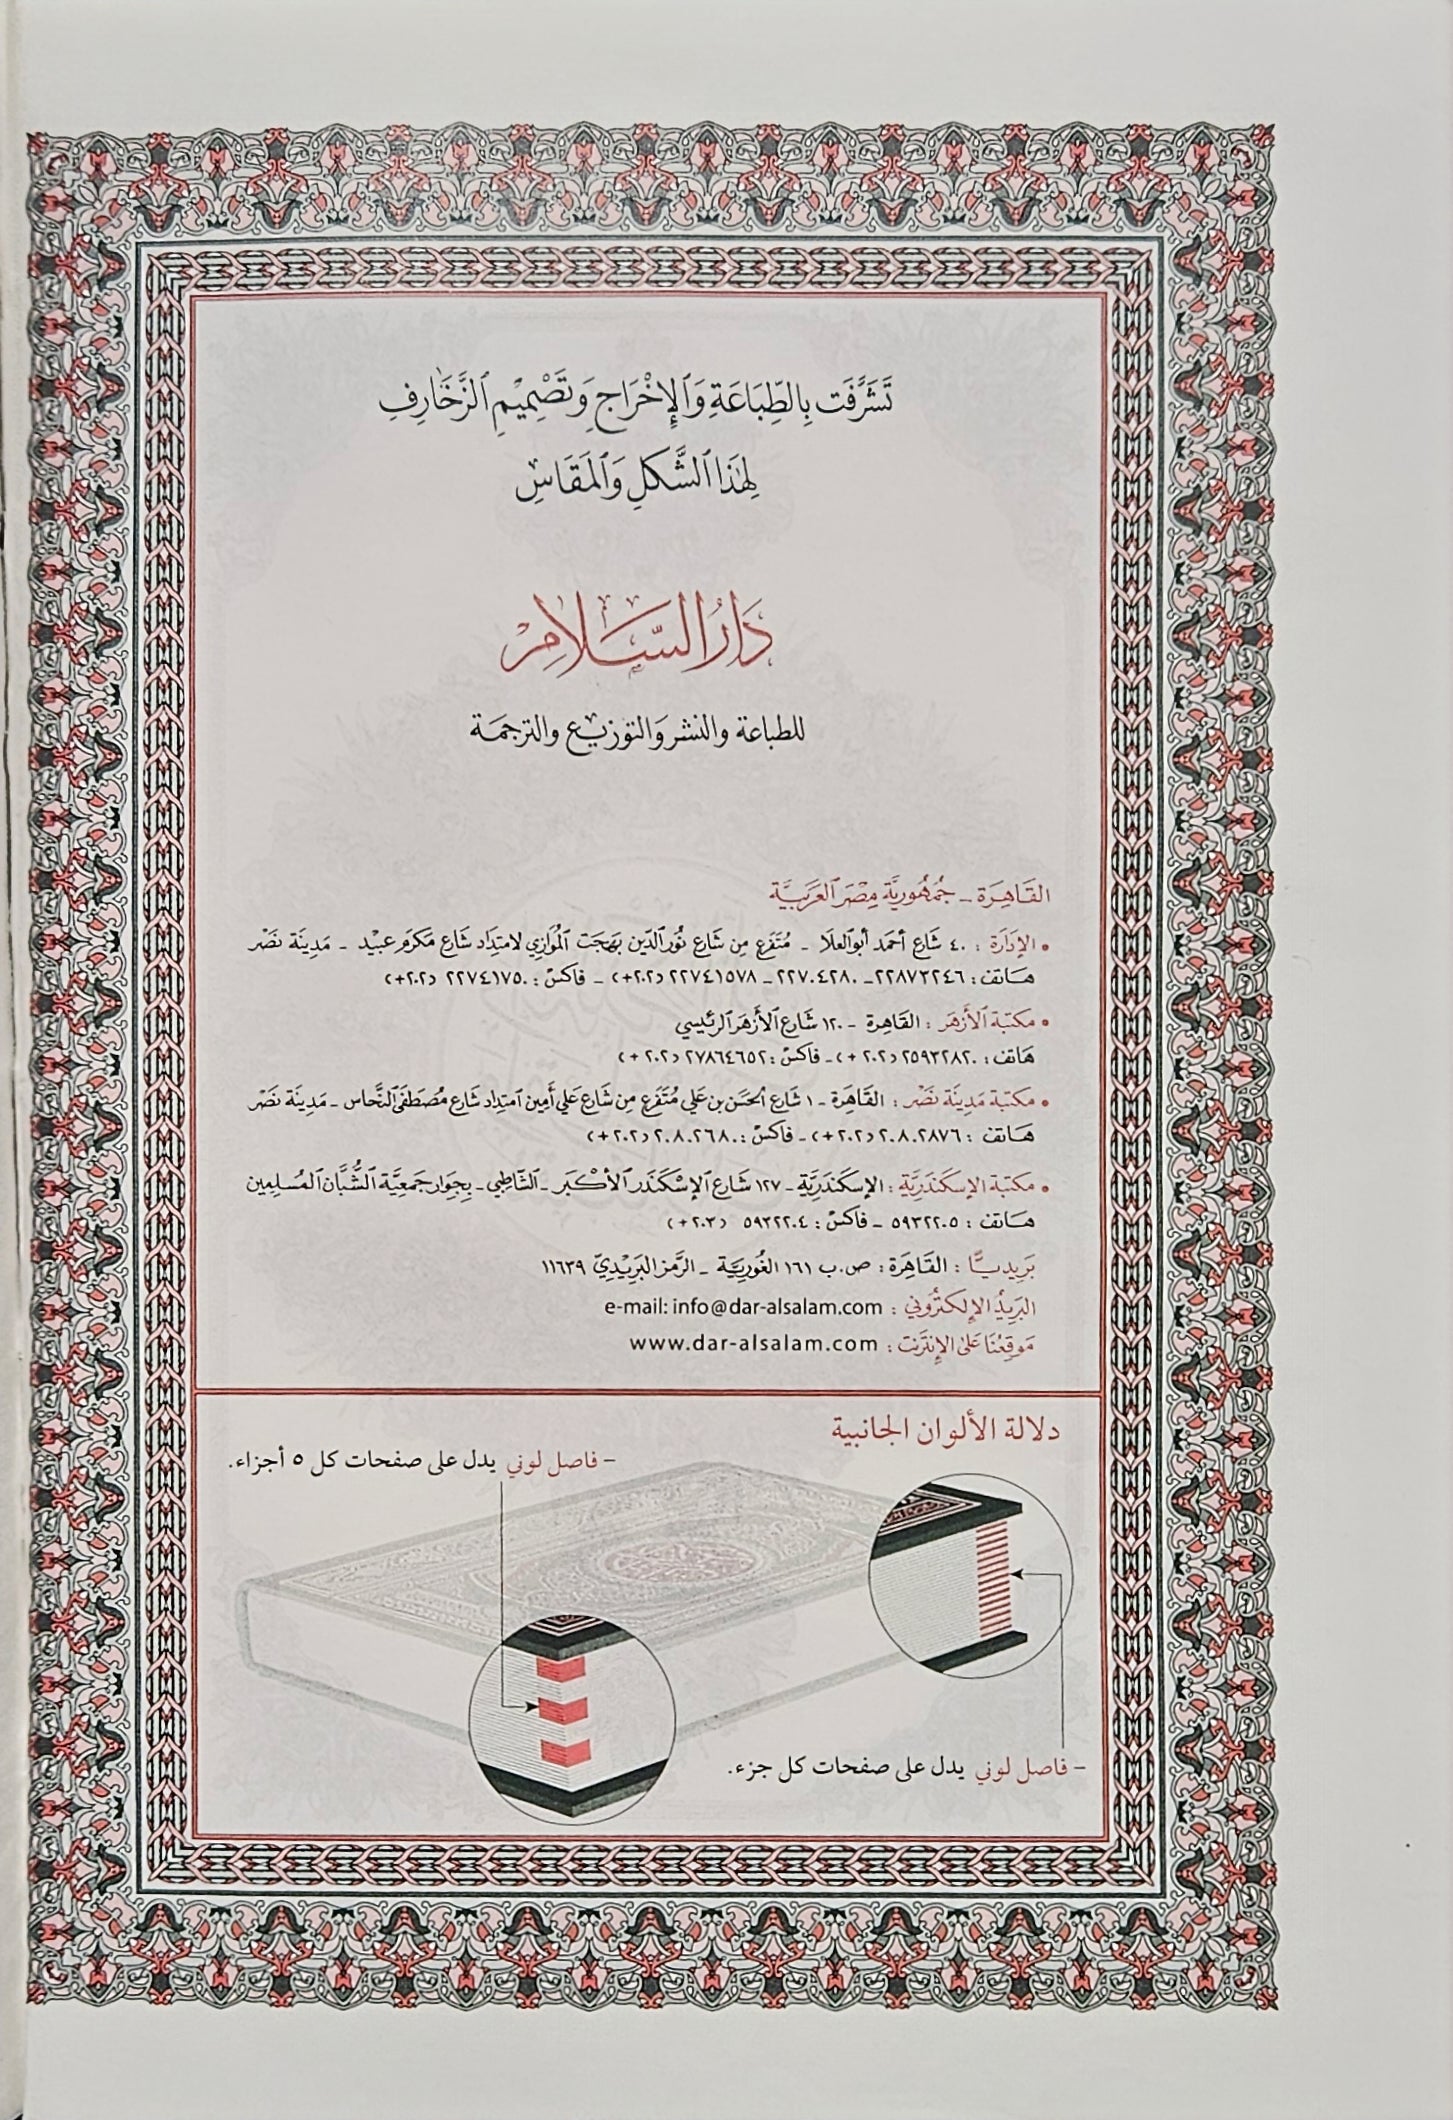 تَشَرَّفَت بِالطِّبَاعَةِ وَٱلإِخْرَاجِ وَتَصْمِيْمِ ٱلزَّخَارِفِ
لِهٰذَا ٱلشَّكلِ وَٱلمَقَاسِ
دَارُ السَّلَامِ
للطباعة والنشر وَالتوزيع والترجمَة
القَاهِرَة - جُمهُوريَّة مِصْرَ ٱلعَرَبيَّة
• الإدَارَة : ٤٠ شَارع أحمَد أبوالعلَا - مُتفَرع مِن شَارع نُور الدِّين بَهجَت ٱلمُوَازِي لامتِدَاد شَارع مَكرَم عبَيد - مَدِينَة نَصْر
هَاتف : ٢٢٨٧٣٢٤٦ - ٢٢٧٠٤٢٨٠ - ٢٢٧٤١٥٧٨ (٢٠٢+) - فَاكسْ : ٢٢٧٤١٧٥٠ (٢٠٢+)
• مَكتبَة الأزهَر : القَاهِرَة - ١٢٠ شَارع ٱلأَزهَر ٱلرئيسي
هَاتف : ٢٥٩٣٢٨٢٠ (٢٠٢+) - فَاكسْ : ٢٧٨٦٤٦٥٢ (٢٠٢+)
• مَكتبَة مَدِينَة نَصْر : القَاهِرَة - ١ شَارع ٱلحَسَن بن عَلي مُتفَرع مِن شَارع عَلي أَمِين ٱمتِدَاد شَارع مُصْطَفَى النَّحاس - مَدِينَة نَصْر
هَاتف : ٢٠٨٠٢٨٧٦ (٢٠٢+) - فَاكسْ : ٢٠٨٠٢٦٨٠ (٢٠٢+)
• مَكتبَة الإسكَندَريَّة : الإسكَندَريَّة - ١٢٧ شَارع ٱلإسْكَندَر ٱلأكْبَر - الشَّاطِبي - بجوَار جَمعِيَّة ٱلشُّبَّان ٱلمُسلِمِين
هَاتف : ٥٩٣٢٢٠٥ - فَاكسْ : ٥٩٣٢٢٠٤ (٢٠٣+)
بَريديًّا : القَاهِرَة : ص.ب ١٦١ الغُوريَّة - الرَّمز البَريْدِيّ ١١٦٣٩
البَريدُ الإلكتُروني : e-mail: info@dar-alsalam.com
مَوقِعُنَا عَلى الإنترَنت : www.dar-alsalam.com
دلالة الألوان الجانبية
- فاصل لوني يدل على صفحات كل ٥ أجزاء.
- فاصل لوني يدل على صفحات كل جزء.